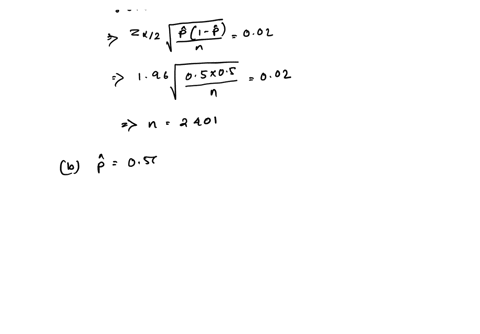 ⇒ Zα/2 √(p̂(1-p̂)/n) = 0.02
⇒ 1.96 √(0.5×0.5/n) = 0.02
⇒ n = 2401
(b) p̂ = 0.5